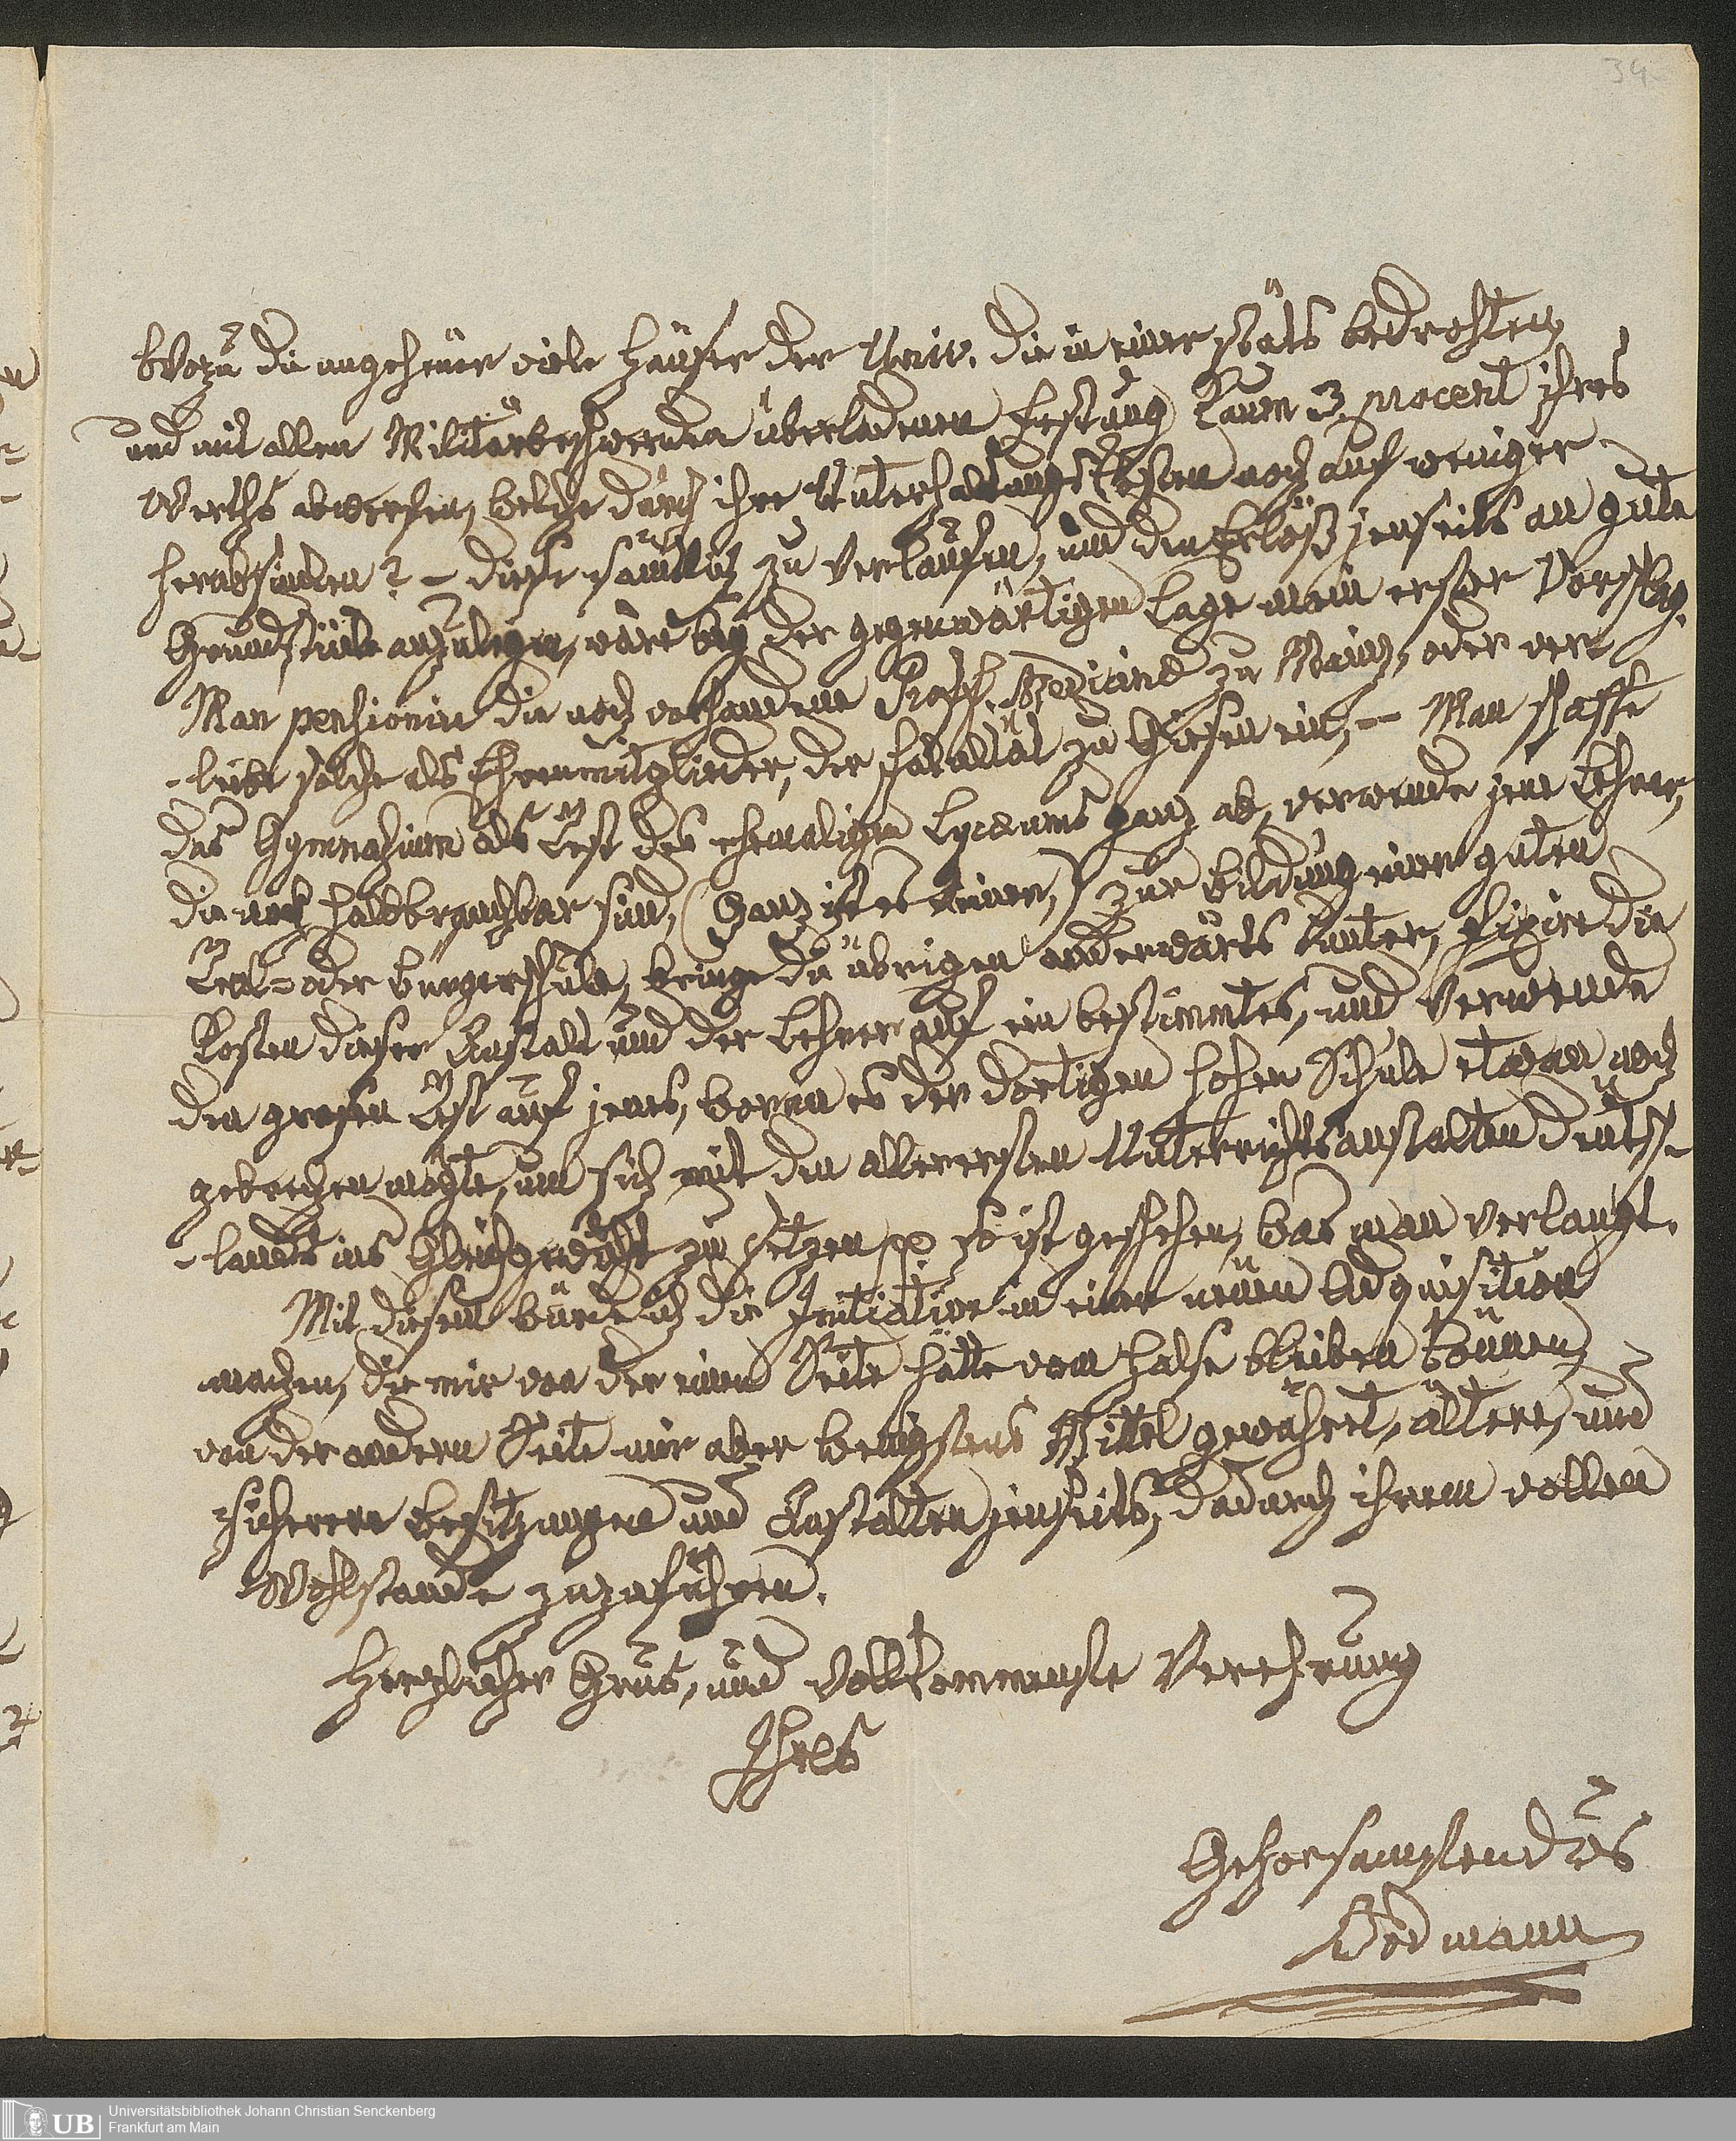 34
Wozu die ungeheuer viele Häuser der Univ. die in einer stäts bedrohten,
und mit allen Militärbeschwerden überladenen Festung kaum 3 procent ihres
Werths abwerfen, welche durch ihre Unterhaltungskosten noch auf weniger
herabsinken? – diese sämtlich zu verkaufen, und den Erlöß jenseits an gute
Grundstücke anzulegen, wäre bey der gegenwärtigen Lage mein erster Vorschlag.
Man pensionire die noch vorhandene Proff. Medicinae zu Mainz, oder ver-
-leibe solche als Ehrenmitglieder, der Fakultät zu Giesen ein, – Man schaffe
das Gymnasium als Rest des ehemaligen Lycäums ganz ab, verwende jene Lehrer,
die noch halbbrauchbar sind, (Ganz ist es keiner,) zur Bildung einer guten
Real- oder Bürgerschule, bringe die übrigen anderwärts unter, fixire die
Kosten dieser Anstalt und der Lehrer auf ein bestimmtes, und verwende
den grosen Rest auf jenes, woran es der dortigen hohen Schule etwan noch
gebrechen mögte, um sich mit den allerersten Unterrichtsanstalten Deutsch-
-lands ins Gleichgewicht zu setzen p so ist geschehen, was man verlangt.
Mit diesem würde ich die Initiative in einer neuen Acquisition
machen, die mir von der einen Seite hätte vom Halse bleiben können,
von der andern Seite mir aber wenigstens Mittel gewährt, ältere, und
sicherere Besitzungen und Anstalten jenseits, dadurch ihrem vollen
Wohlstande zuzuführen.
Herzlicher Grus, und vollkommenste Verehrung
Ihres
Gehorsamsten Drs
Bodmann
UB
Universitätsbibliothek Johann Christian Senckenberg
Frankfurt am Main